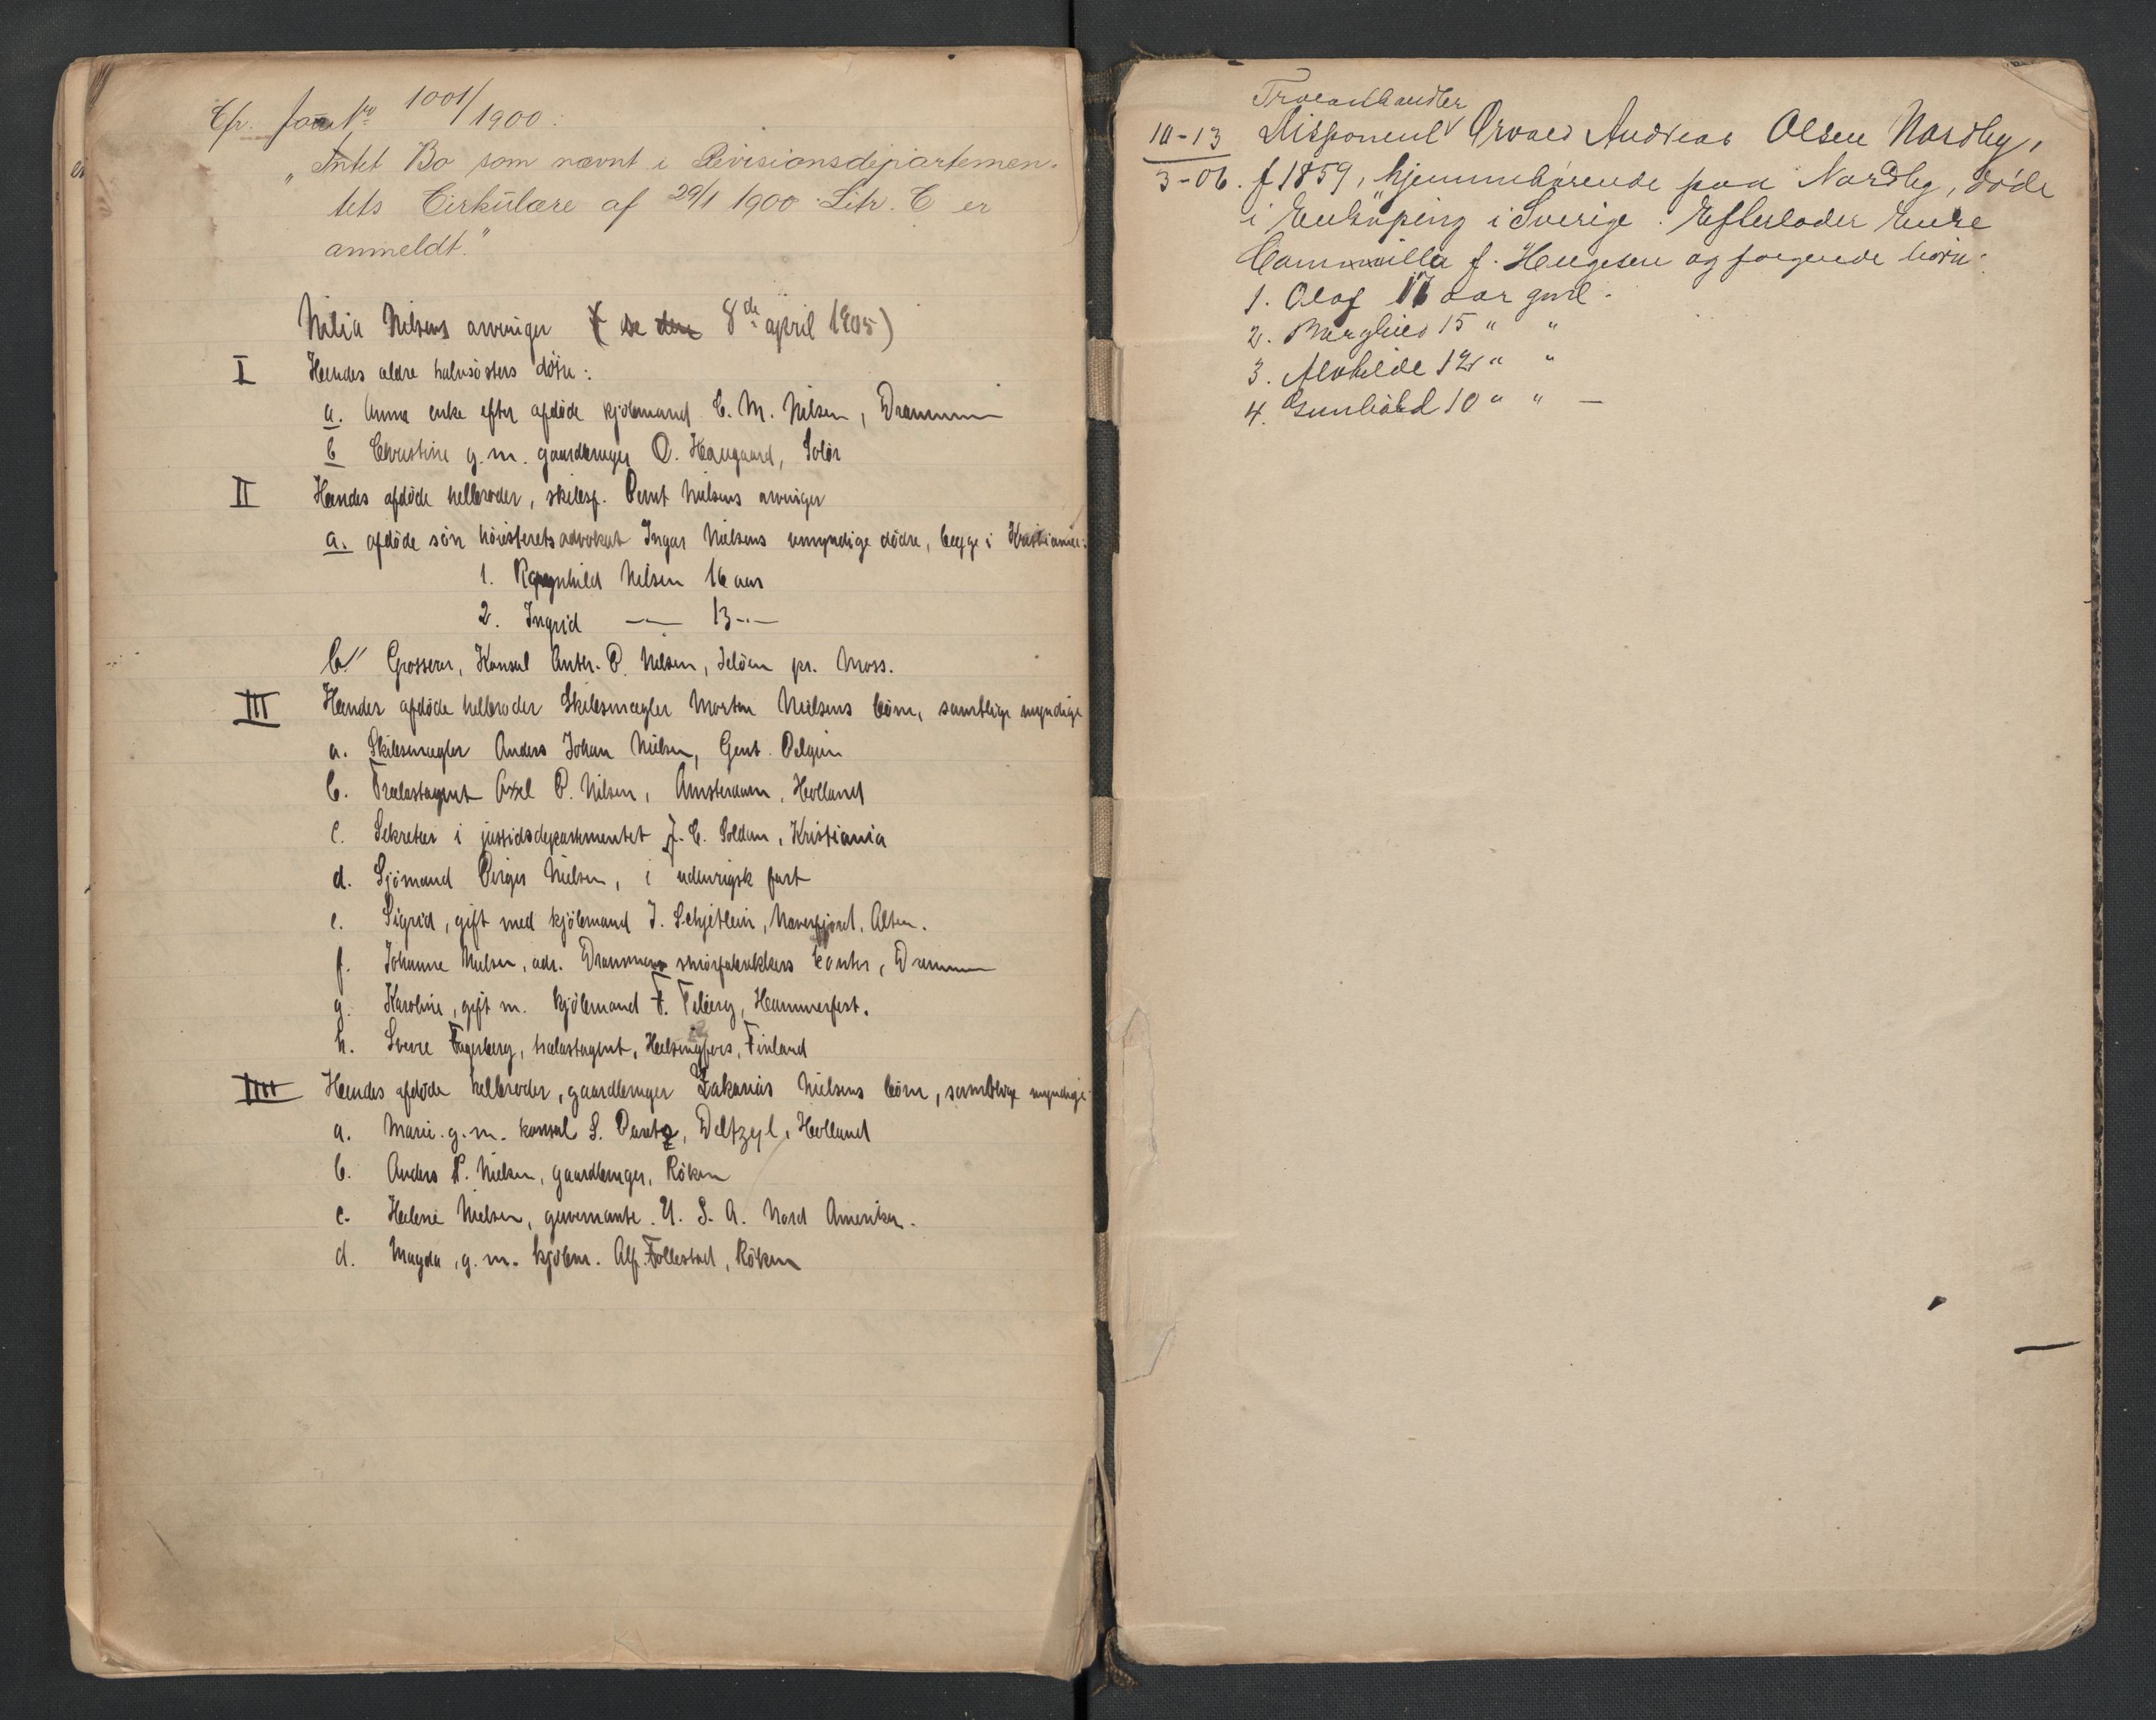 Cfr. Jour No 1001/1900:
"Intet Bo som nævnt i Revisionsdepartemen-
tets Cirkulære af 29/1 1900 Litr. C er
anmeldt."
Nilia Nilsens arvinger ( se den 8de april 1905)
I Hendes ældre halvsösters döttre:
a. Anna enke efter afdöde kjöbmand C. M. Nilsen, Drammen
b Christine g. m. gaardbruger O. Haugaard, Solör
II Hendes afdöde helbroder, skibsf. Bernt Nielsens arvinger
a. afdöde sön höiesteretsadvokat Ingar Nielsens umyndige dödre, begge i Kristiania:
1. Ragnhild Nilsen 16 aar
2. Ingrid —"— 13 -"-
b. Grosserer, Konsul Anth. B. Nilsen, Jelöen pr. Moss.
III Hendes afdöde helbroder Skibsmægler Morten Nielsens börn, samtlige myndige
a. Skibsmægler Anders Johan Nielsen, Gent. Belgien
b. Trælastagent Axel B. Nilsen, Amsterdam, Holland
c. Sekretær i justisdepartementet J. C. Soldan, Kristiania
d. Sjömand Birger Nielsen, i udenrigsk fart
e. Sigrid, gift med kjöbmand J. Schjetlein, Naverfjord, Alten.
f. Johanne Nielsen, adr. Drammens smörfabrikkers kontor, Drammen
g. Karoline, gift m. kjöbmand F. Feiberg, Hammerfest.
h. Sverre Fagerberg, trælastagent, Helsingfors, Finland
IIII Hendes afdöde helbroder, gaardbruger Zakarias Nielsens börn, samtlige myndige
a. Marie. g. m. konsul S. Paretz, Delfzyl, Holland
b. Anders P. Nielsen, gaardbruger, Röken
c. Helene Nielsen, guvernante. U. S. A. Nord Amerika.
d. Magda, g. m. kjöbm. Alf. Follestad, Röken
Trælasthandler
10-13 Disponent Orvald Andreas Olsen Nordby,
3-06. f 1859, hjemmehørende paa Nordby, døde
i Enköping i Sverige. Efterlader Enke
Cammilla f. Hengesen og følgende børn:
1. Olaf 17 aar gml.
2. Borghild 15 " "
3. Alvhilde 12 " "
4. Gunhild 10 " " —